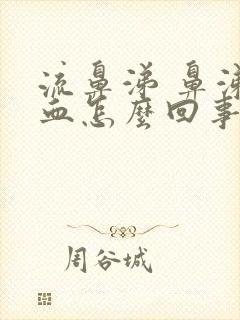 流鼻涕 鼻涕
血怎麼回事
周谷城